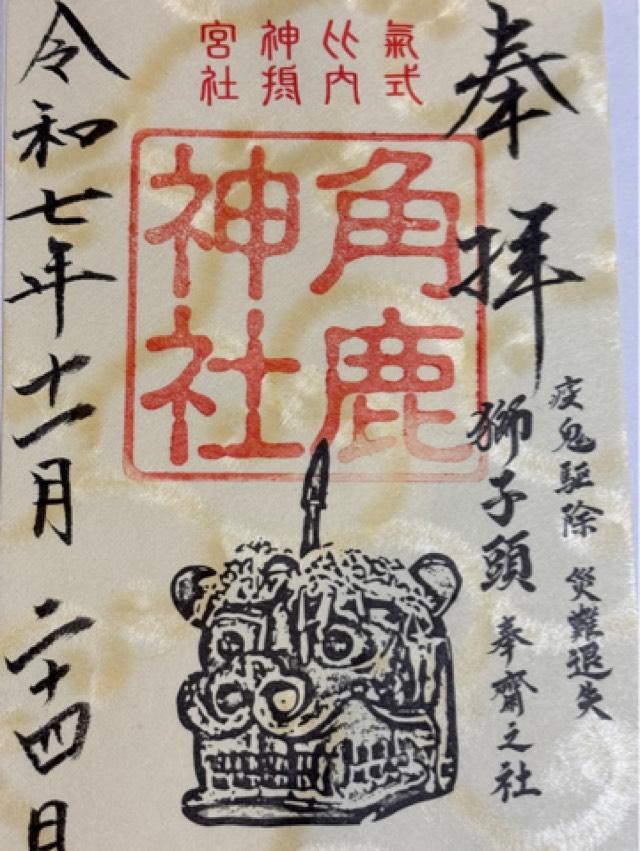 奉拝
疫鬼駆除 災難退失
獅子頭 奉齋之社
式内
氣比
神宮
摂社
角鹿
神社
令和七年十一月二十四日